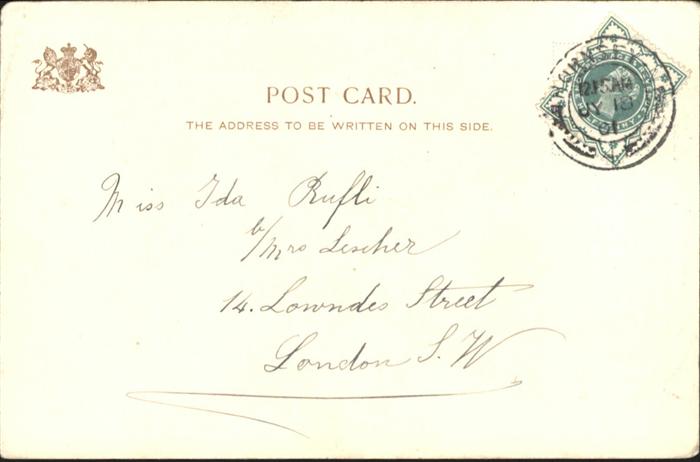 POST CARD.
THE ADDRESS TO BE WRITTEN ON THIS SIDE.
12.15AM
JY 18
01
Miss Ida Rufli
Mrs Lescher
14. Lowndes Street
London S. W